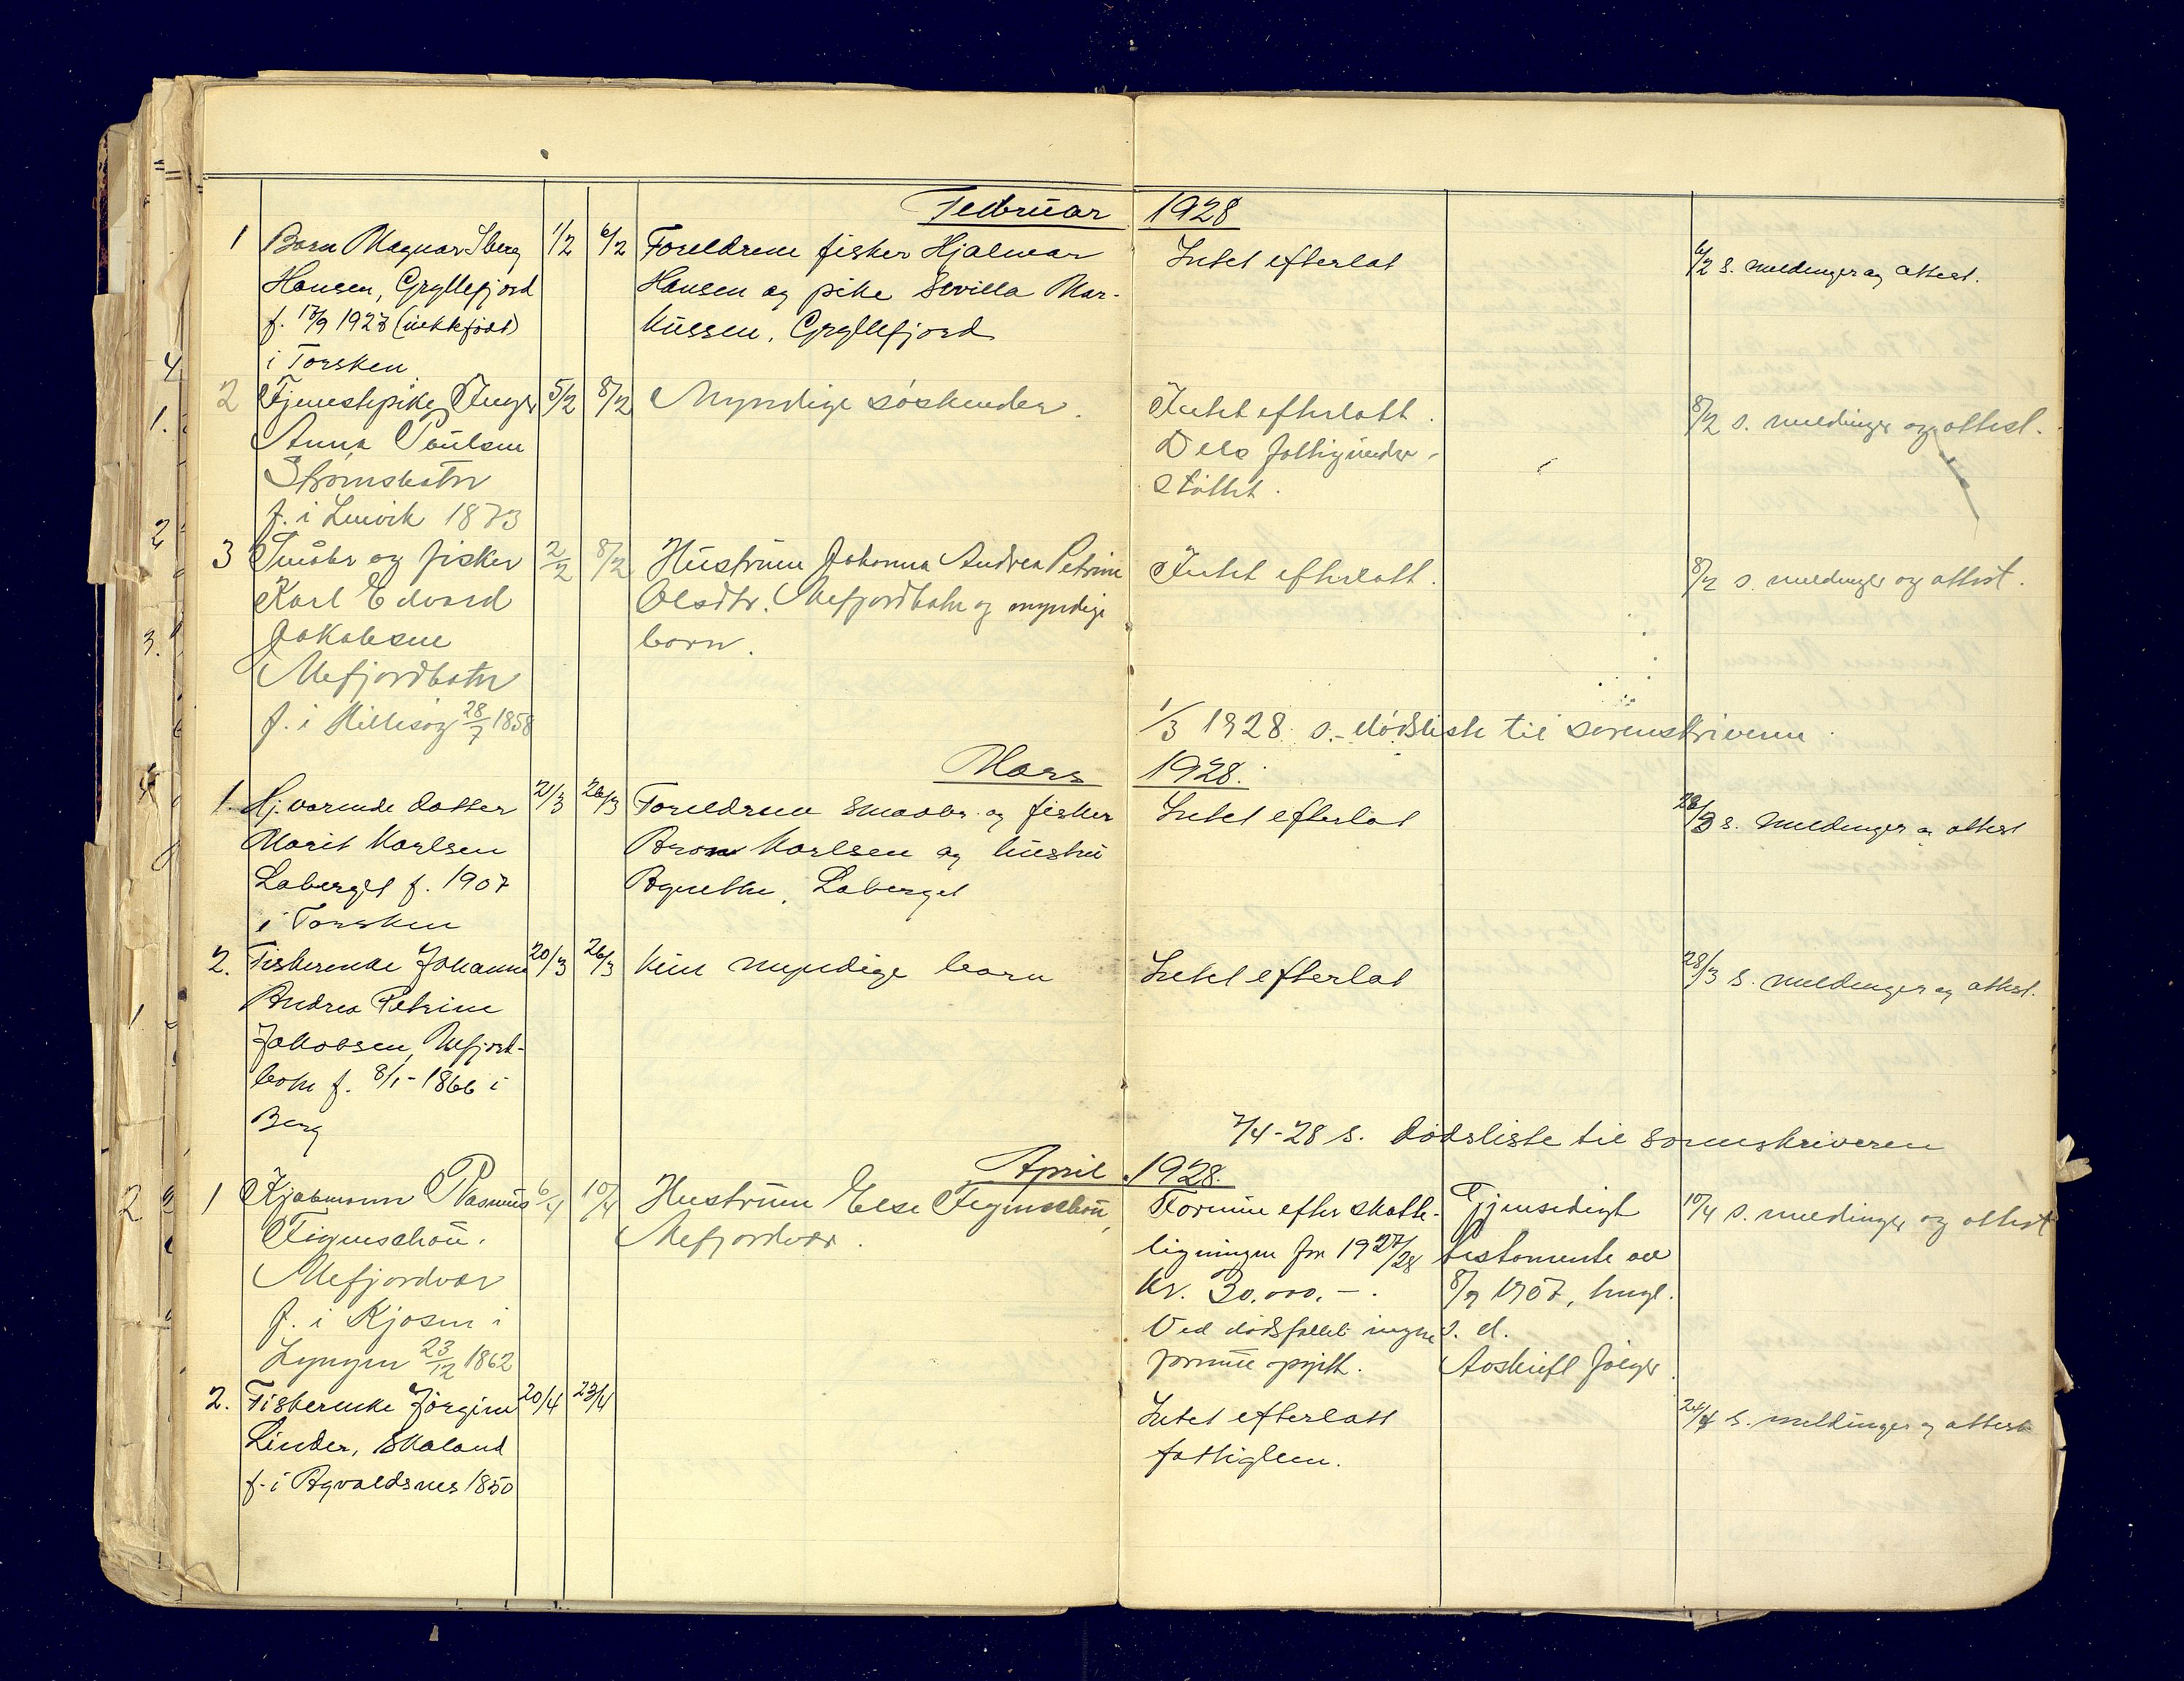 Februar 1928
1 Barn Magnar Iberg 1/2 6/2 Foreldrene fisker Hjalmar Intet efterlat 6/2 s. meldinger og attest.
Hansen, Gryllefjord Hansen og pike Sevilla Mar-
f. 17/9 1927 (uekkfødt) kussen, Gryllefjord
i Torsken
2 Tjenestepike Inger 5/2 8/2 Myndige søskender. Intet efterlatt. 8/2 s. meldinger og attest.
Anna Paulsen Dels fattigunder-
Strømsbotn støttet.
f. i Lenvik 1873
3 Småbr og fisker 2/2 8/2 Hustruen Johanna Andrea Petrine Intet efterlatt. 8/2 s. meldinger og attest.
Karl Edvard Olsdtr. Mefjordbotn og myndige
Jakobsen born.
Mefjordbotn
f. i Hillesøy 28/7 1858
1/3 1928 s. dødsliste til sorenskriveren
Mars 1928.
1. Hj. værende datter 21/3 26/3 Foreldrene smaabr. og fisker Intet efterlat 28/3 s. meldinger og attest
Marit Karlsen Karlsen og hustru
Laberget f. 1907 Agnethe, Laberget
i Torsken
2. Fiskerenke Johanna 20/3 26/3 Kun myndige barn Intet efterlat 28/3 s. meldinger og attest.
Andrea Petrine
Jakobsen, Mefjord-
botn f. 8/1-1866 i
Berg
7/4-28 s. dødsliste til sorenskriveren
April 1928.
1 Kjøbmann Rasmus 6/4 10/4 Hustruen Else Figenschou, Formue efter skatte- Gjensidigt 10/4 s. meldinger og attest
Figenschou. Mefjordvær. ligningen for 1927/28 testamente av
Mefjordvær kr. 30.000.-. 8/9 1907, tingl.
f. i Kjosen i Ved dødsfallet ingen s. d.
Lyngen 23/12 1862 formue opgitt. Avskrift følger.
2. Fiskerenke Jørgine 20/4 23/4 Intet efterlatt 24/4 s. meldinger og attest
Linder, Skaland fattiglem.
f. i Avaldsnes 1850
4
1.
2
3.
4
1
2